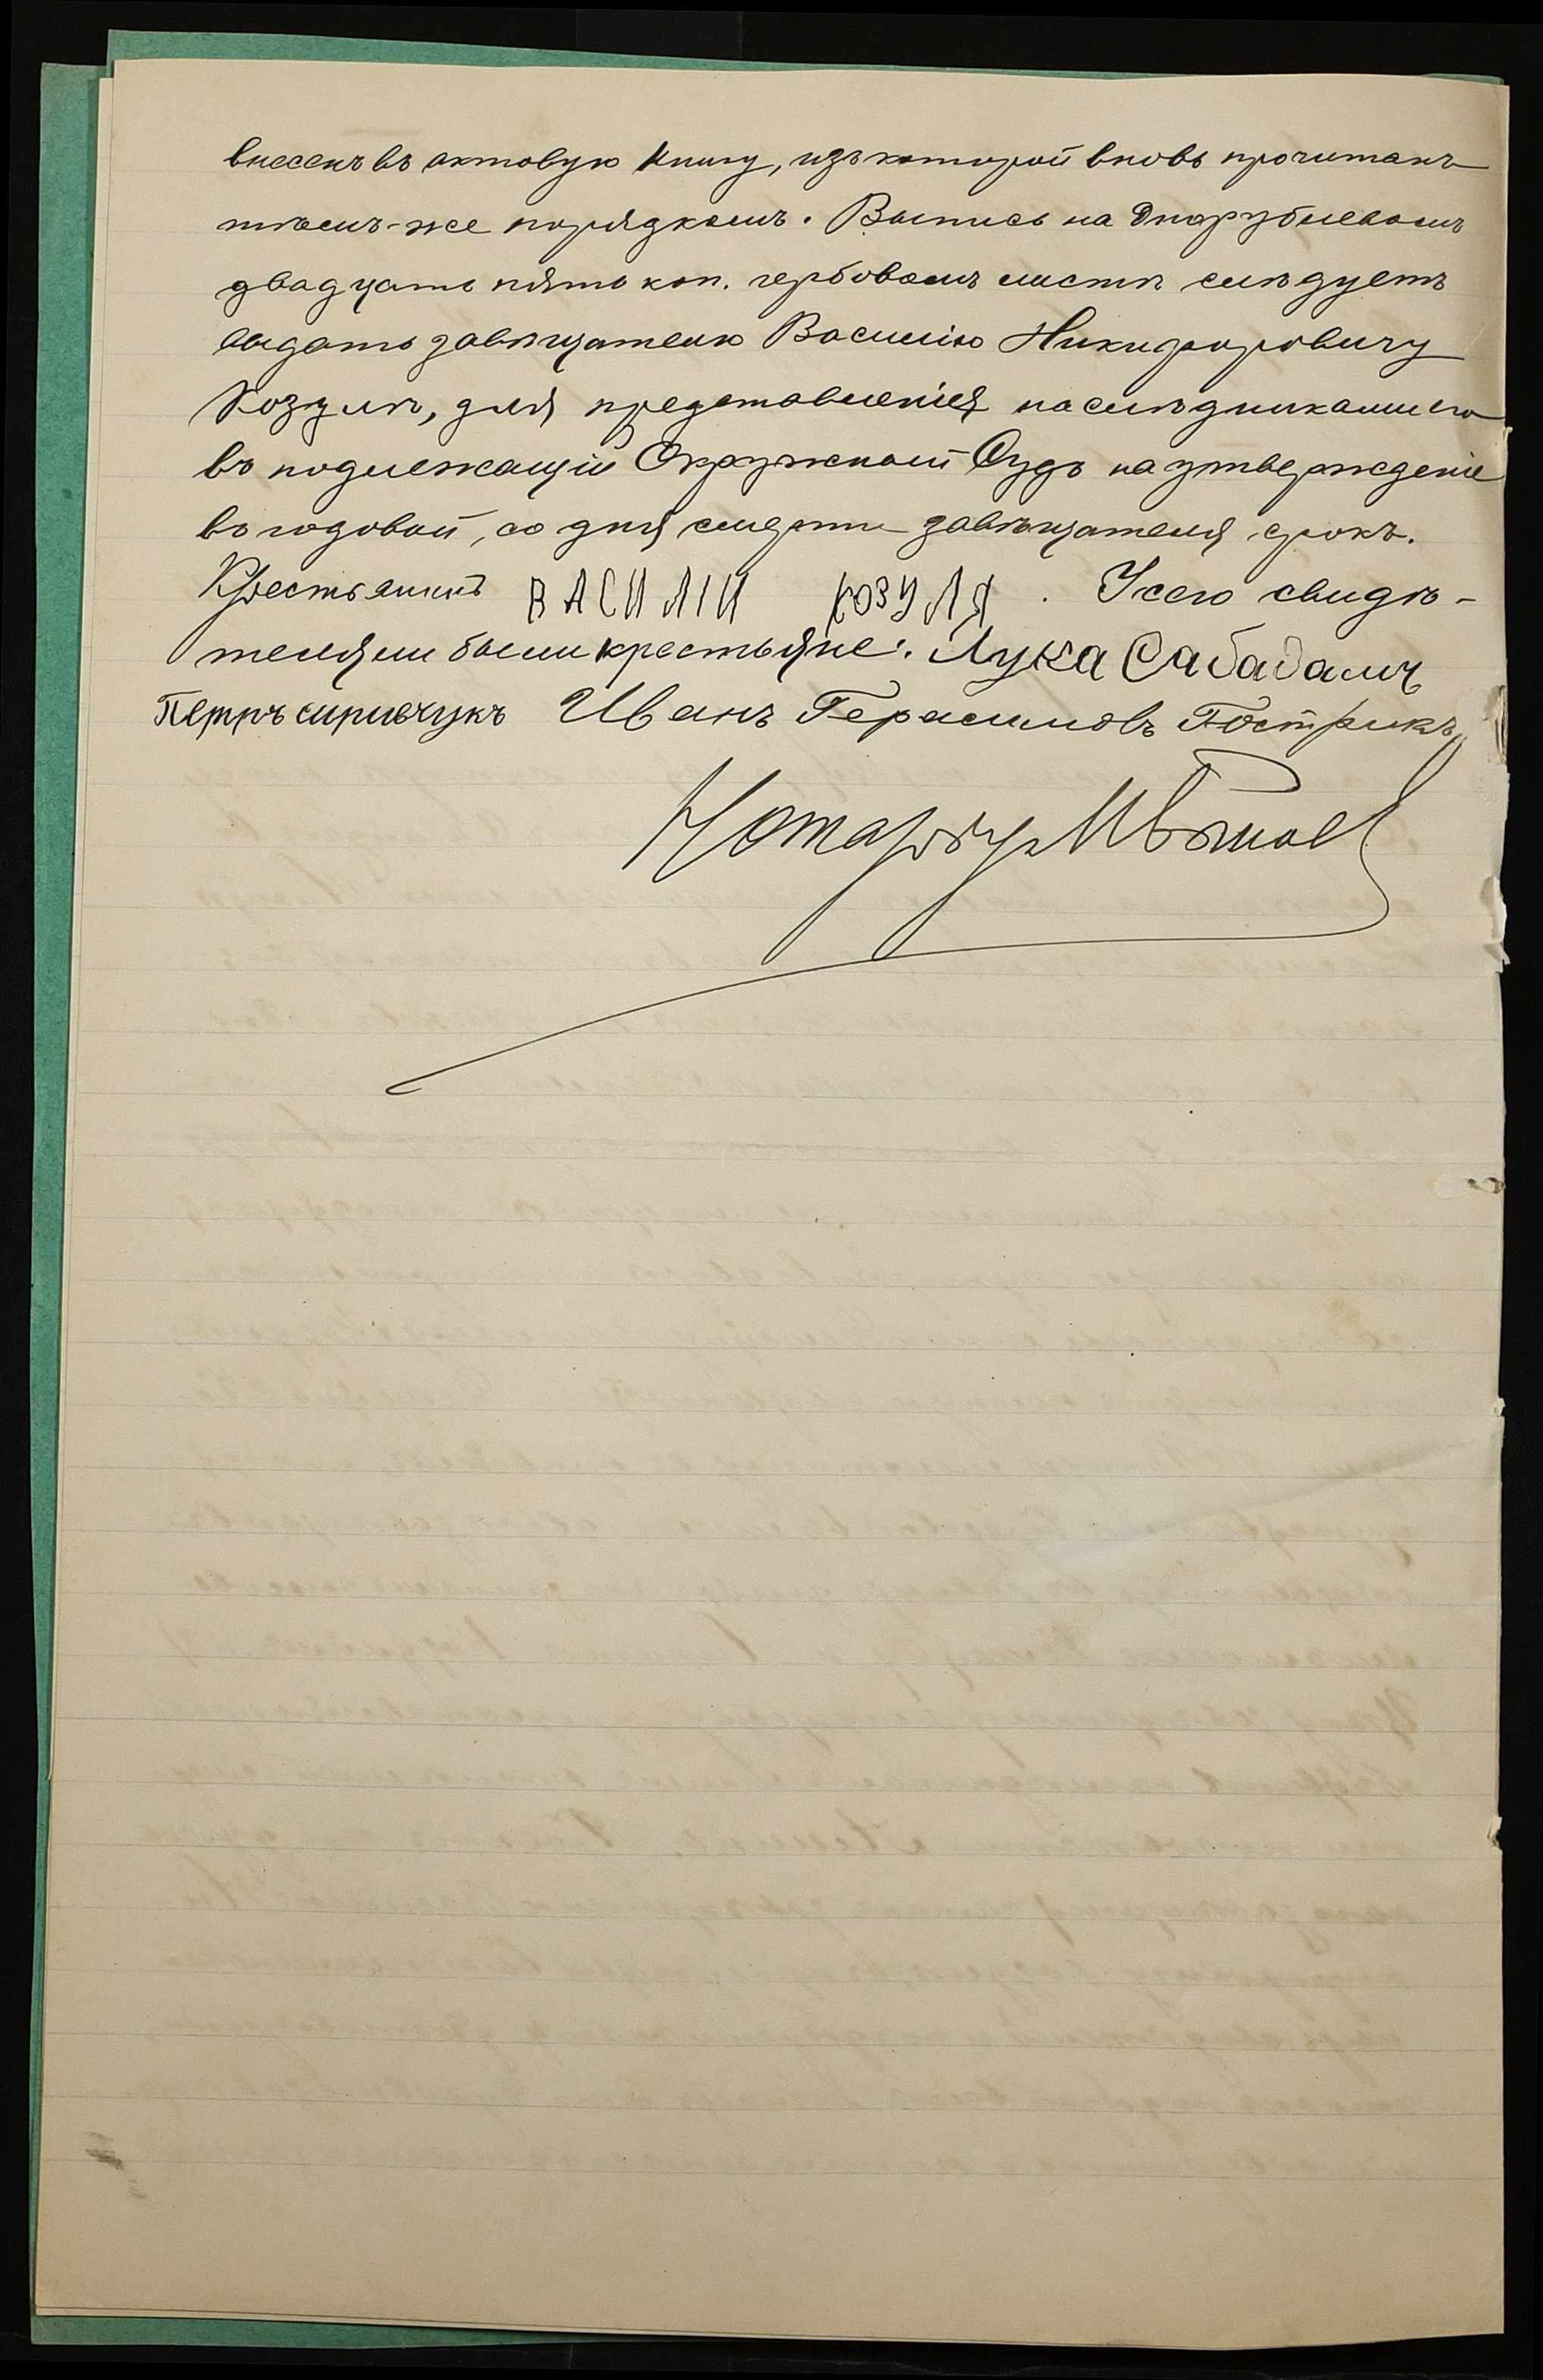 внесенъ въ актовую книгу, изъ которой вновь прочитанъ
тѣмъ-же порядкомъ. Выпись на однорублевомъ
двадцать пять коп. гербовомъ листѣ слѣдуетъ
выдать завѣщателю Василію Никифоровичу
Козулѣ, для представленія наслѣдниками его
въ подлежащій Окружной Судъ на утвержденіе
въ годовой, со дня смерти завѣщателя, срокъ.
Крестьянинъ ВАСИЛІЙ КОЗУЛЯ. У сего свидѣ-
телями были крестьяне: Лука Сабадашъ
Петръ Иванъ Герасимовъ Гострикъ,
Нотаріусъ